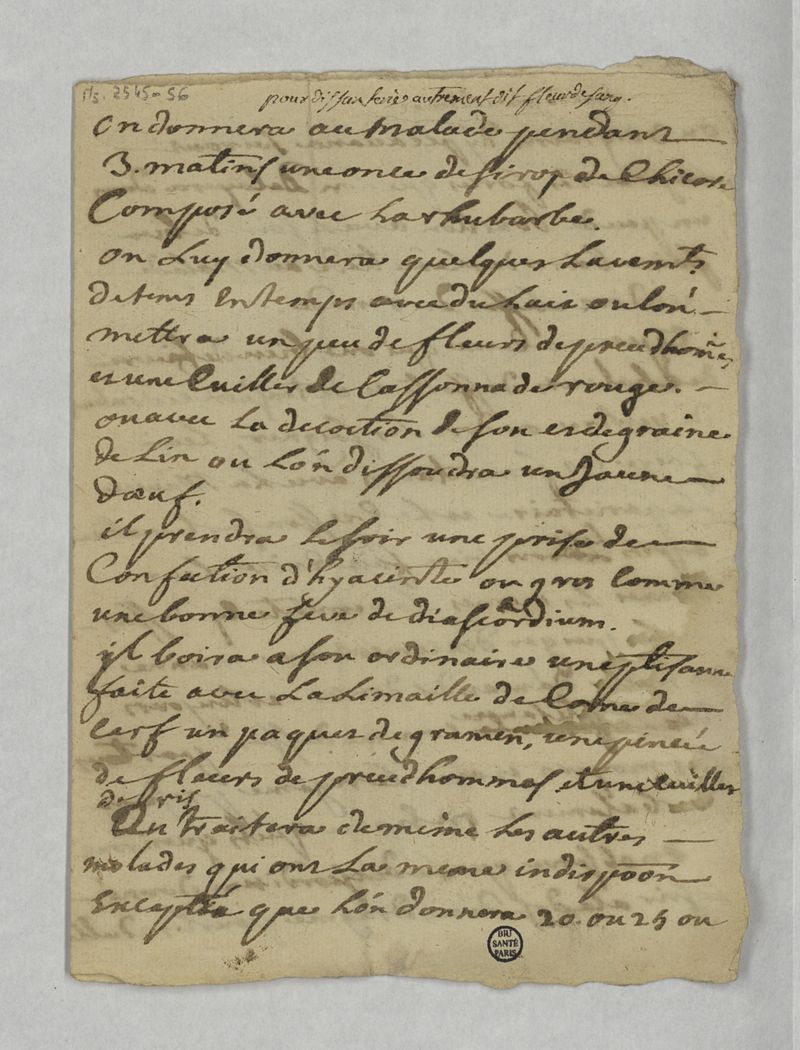 Ms. 2545-56
pour dissanterie autrement dit fleur de sang.
On donnera au Malade pendant
3. matins une once de sirop de Chicoré
Composé avec La rhubarbe.
on Luy donnera quelques Lavemts
de tems En temps avec du Lait ou lón
mettra un peu de fleurs de preudhomes
et une Cuiller de Cassonnade rouge.
ou avec La decoction de son et de graine
de Lin ou Lón dissoudra un Jaune
dœuf.
il prendra Le soir une prise de
Confection d'hyacinte ou gros Comme
une bonne feve de diascordium.
yl boira a son ordinaire une ptisanne
faite avec La Limaille de Corne de
Cerf un paquet de gramen, une pincée
de fleurs de preudhommes et une cuiller
de ris
On traitera de meme Les autres
malades qui ont La meme indispoón
Excepté que Lón donnera 20 ou 25 ou
BIU
SANTÉ
PARIS